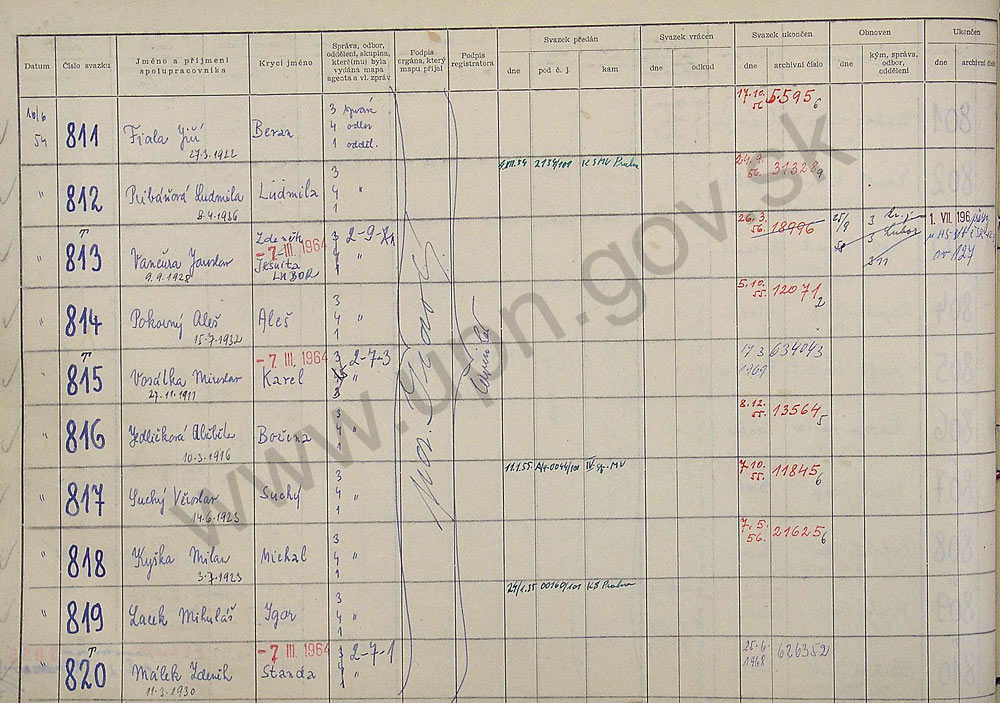 Datum
Číslo svazku
Jméno a příjmení
spolupracovníka
Krycí jméno
Správa, odbor,
oddělení, skupina,
které(mu) byla
vydána mapa
agenta a vl. zpráv
Podpis
orgána, který
mapu přijal
Podpis
registratora
Svazek předán
dne
pod č. j.
kam
Svazek vrácen
dne
odkud
Svazek ukončen
dne
archivní číslo
Obnoven
dne
kým, správa,
odbor,
oddělení
Ukončen
dne
archivní číslo
10/6
54
811
Fiala Jiří
27.3.1922
Beran
3 správa
4 odbor
1 odděl.
17.10.
56.
5595
6
" 812
Ludmila
8.4.1936
Ludmila
3
4 "
1
4.VIII.54 2134/101 KSMV Praha
24.9.
56.
31328
9
" T
813
Vančura Jaroslav
9.9.1928
Zdeněk
-7. III. 1964
Jesuita
LUBOR
3 2-9-
4 "
1
26.3.
56.
18996
25/9
58
3
3 Lubor
1. VII. 196
127
" 814
Pokorný Aleš
15.7.1932
Aleš
3
4 "
1
5.10.
55.
12071
2
" T
815
Vosátka Miroslav
27.11.1911
-7. III. 1964
Karel
3 2-7-3
"
3
17 3
1969
634043
" 816
Jedličková
10.3.1916
Božena
3
4 "
1
8.12.
55.
13564
5
" 817
Suchý Věroslav
14.6.1923
Suchý
3
4 "
1
11.1.55 A/1-0046/101 IV. sp. MV
7.10.
55.
11845
6
" 818
Kyška Milan
3.7.1923
Michal
3
4 "
1
7.5.
56.
21625
6
" 819
Lacek Mikuláš
Igor
3
4 "
1
24/1.55 00160/101 KS Praha
" T
820
Málek Zdeněk
11.3.1930
-7. III. 1964
Standa
3 2-7-1
4 "
1
25.6.
1968
626352
www.upn.gov.sk